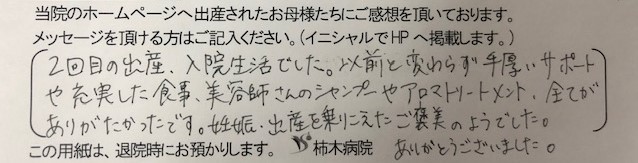 当院のホームページへ出産されたお母様たちにご感想を頂いております。
メッセージを頂ける方はご記入ください。(イニシャルでHPへ掲載します。)
2回目の出産、入院生活でした。以前と変わらず手厚いサポート
や充実した食事、美容師さんのシャンプーやアロマトリートメント、全てが
ありがたかったです。妊娠・出産を乗りこえたご褒美のようでした。
この用紙は、退院時にお預かりします。 柿木病院 ありがとうございました。